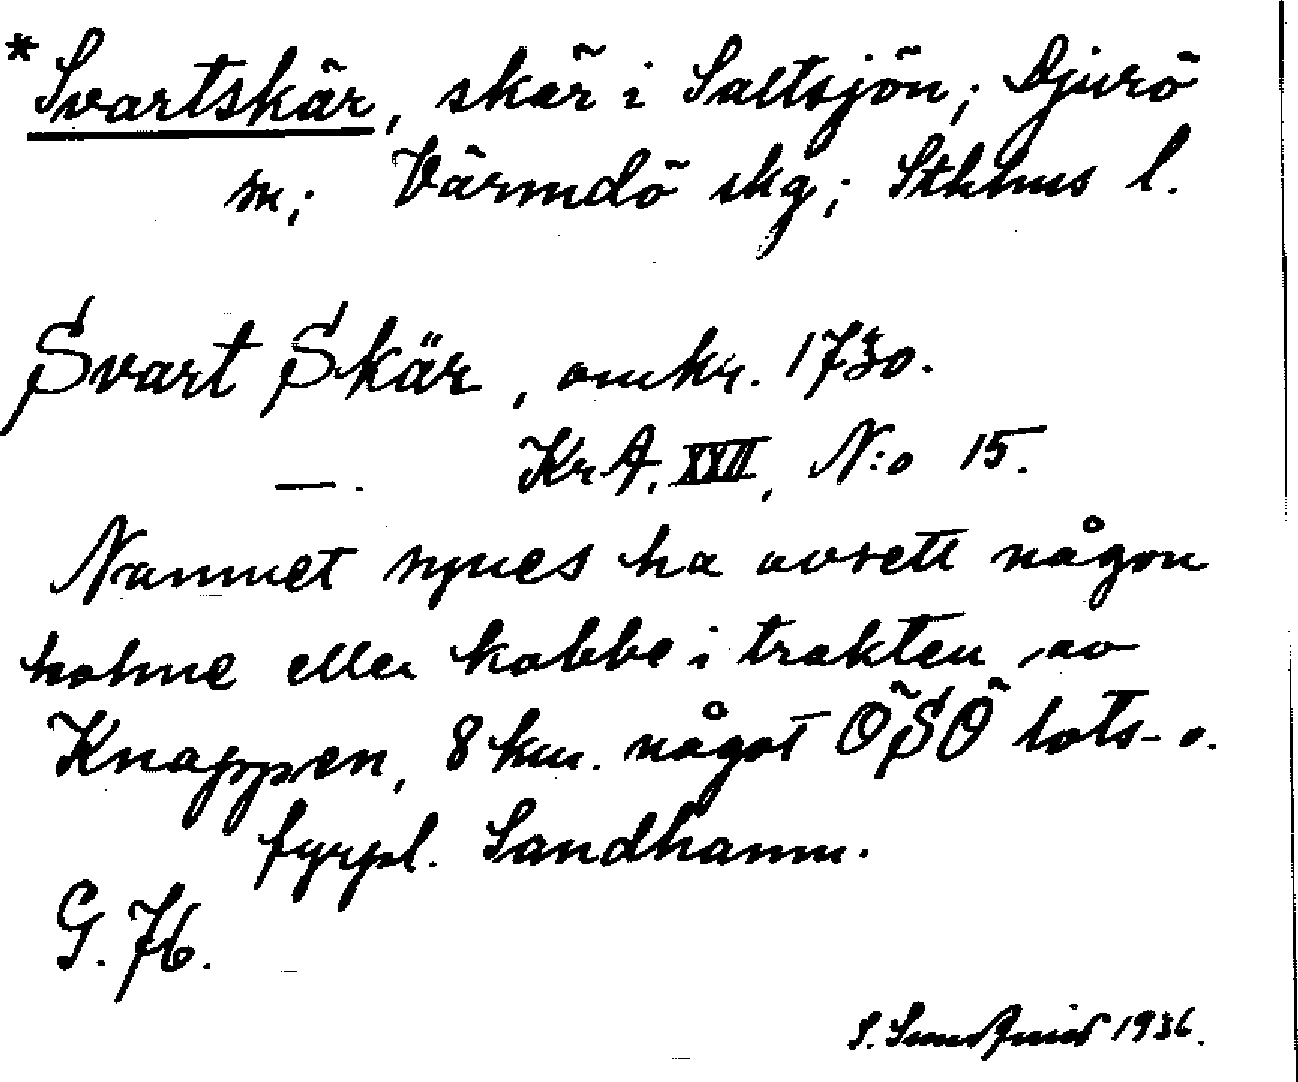 *Svartskär, skär i Saltsjön; Djurö
sn; Värmdö skg; Sthlms l.
Svart Skär, omkr. 1730.
— . Kr A. XXII, N:o 15.
Namnet synes ha avsett någon
holme eller kobbe i trakten av
Knappen, 8 km. något ÖSÖ lots- o.
fyrpl. Sandhamn.
G. 76.
S. 1936.